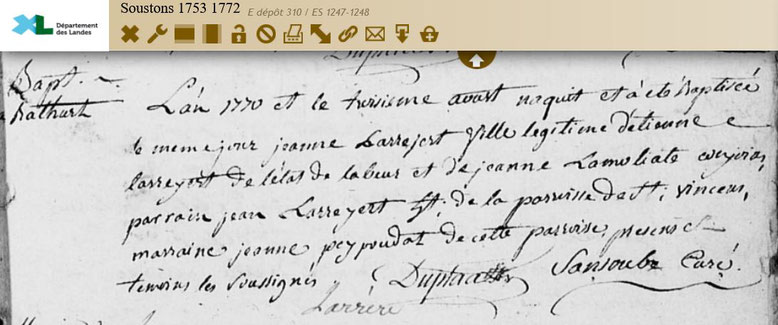 Département
des Landes
Soustons 1753 1772 E dépôt 310 / ES 1247-1248
Bapt.
L'an 1770 et le troisieme avust naquit et à eté Baptisée
le meme jour jeanne Larreyert fille legitime d'etienne
larreyert de l'état de labeur et de jeanne Lamoliate conjoins,
parrain jean Larreyert de la parroisse de St. vincens,
marraine jeanne peypoudat de cette parroisse, presens
temoins les soussignés Sansoube Curé.
Larrère